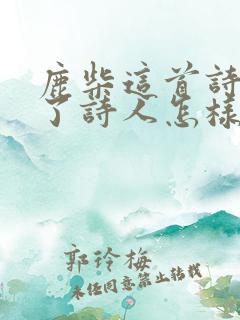 鹿柴這首詩
了詩人怎樣
郭玲梅
未经同意禁止转载